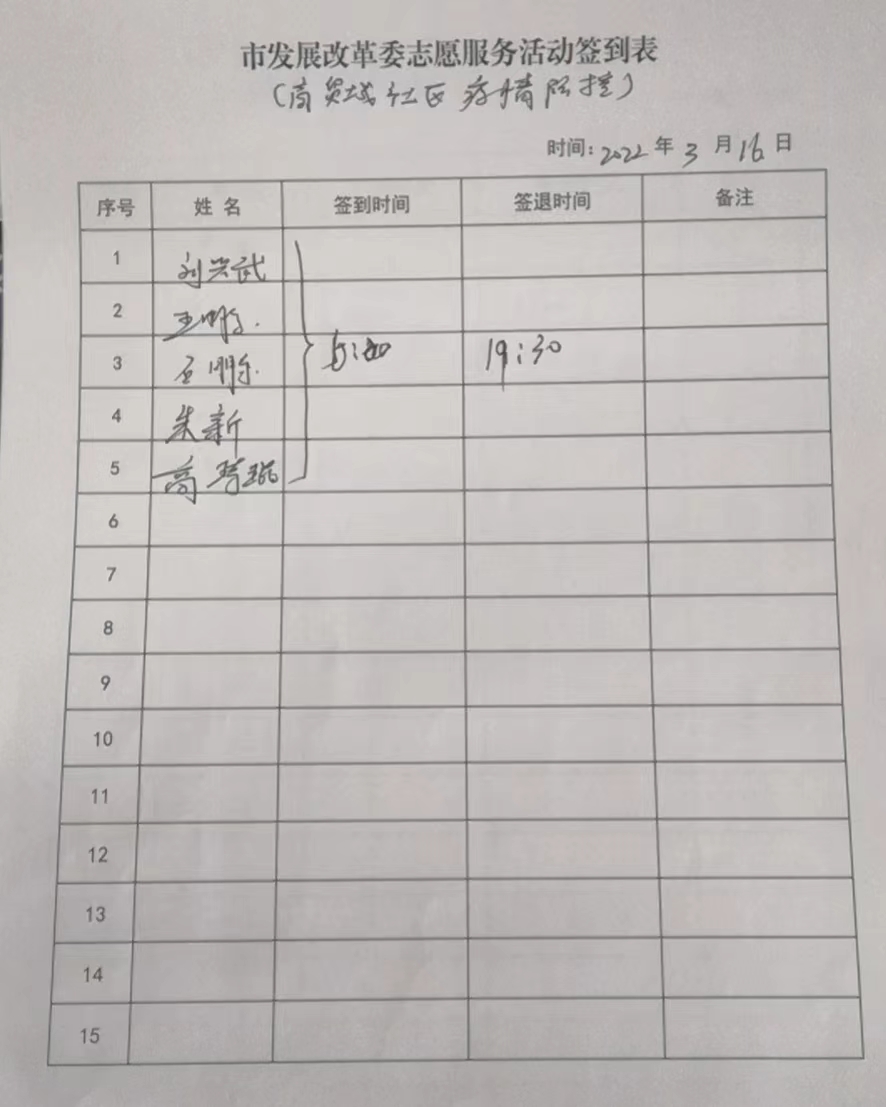 市发展改革委志愿服务活动签到表
(商贸城社区疫情防控)
时间:2022年3月16日
序号 姓名 签到时间 签退时间 备注
1 刘兴武
2
3 19:30
4 朱新
5 高
6
7
8
9
10
11
12
13
14
15